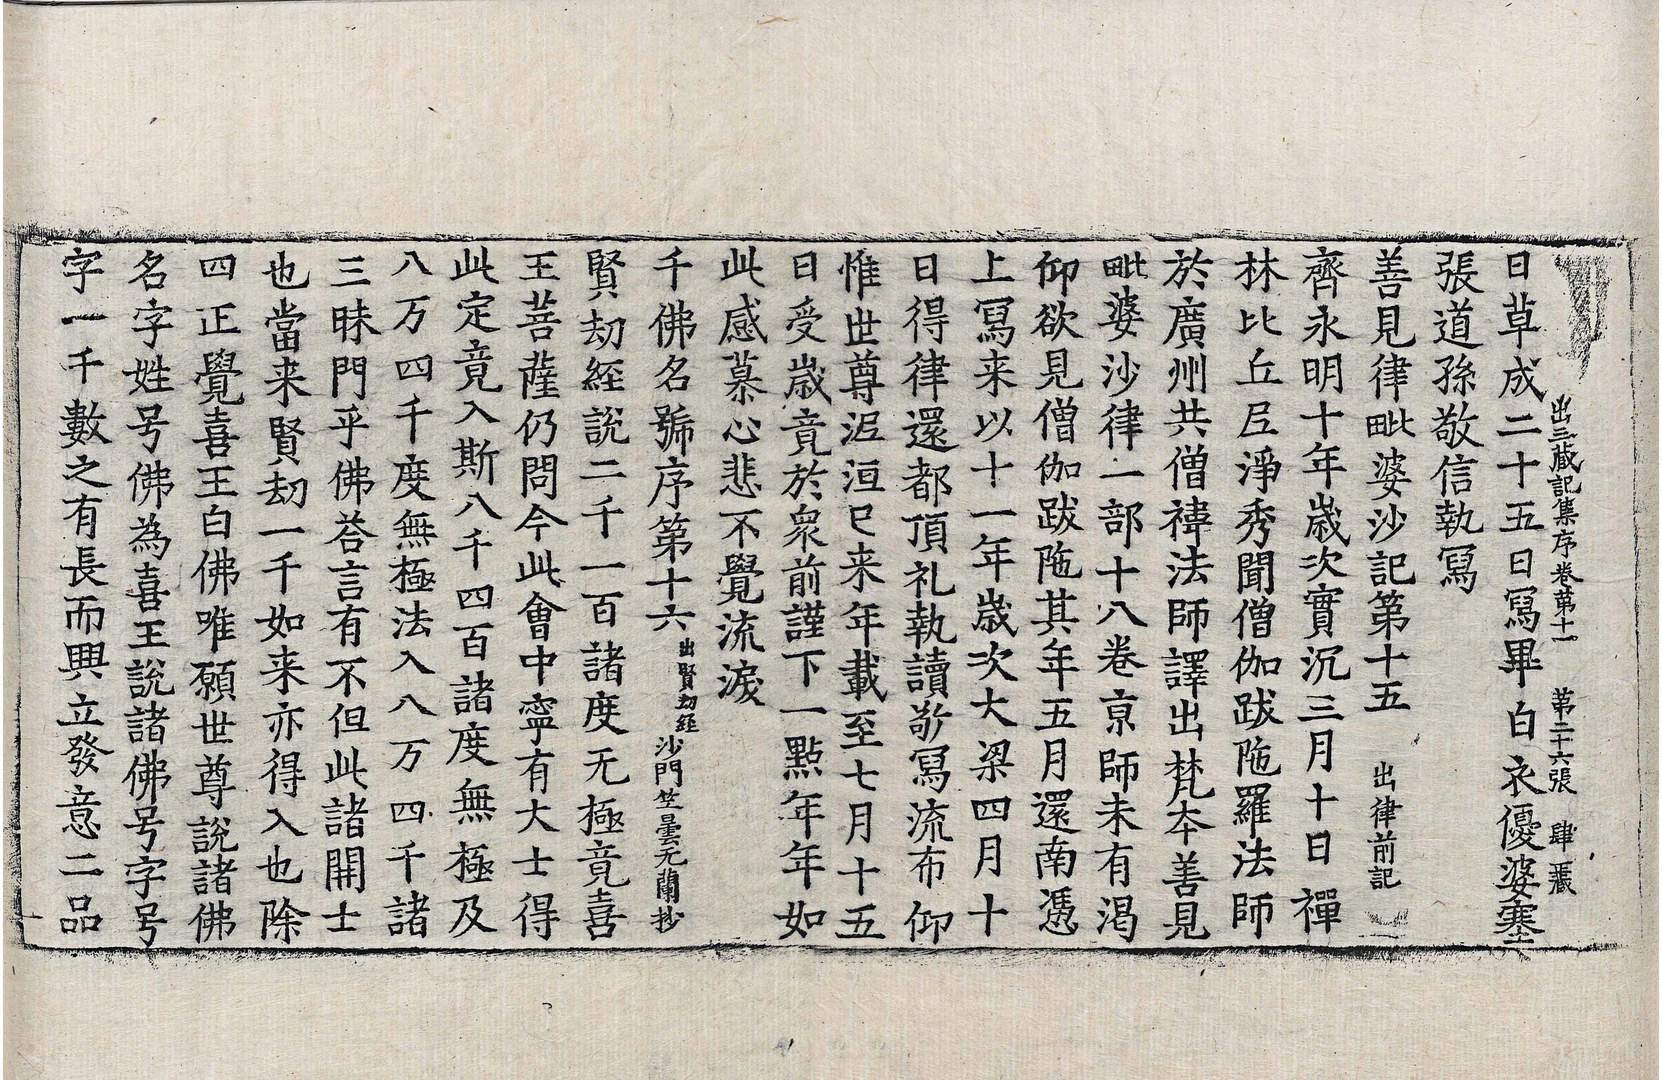 出三藏記集序卷第十一　第二十六張　肆藏
日草成二十五日寫畢白衣優婆塞
張道孫敬信執寫
善見律毗婆沙記第十五　出律前記
齊永明十年歲次實沉三月十日禪
林比丘尼淨秀聞僧伽跋陁羅法師
於廣州共僧禕法師譯出梵夲善見
毗婆沙律一部十八卷京師未有渴
仰欲見僧伽跋陁其年五月還南憑
上寫来以十一年歲次大梁四月十
日得律還都頂礼執讀敬寫流布仰
惟世尊泥洹已来年載至七月十五
日受歲竟於衆前謹下一點年年如
此感慕心悲不覺流淚
千佛名號序第十六　出賢劫經　沙門竺曇无蘭抄
賢劫經說二千一百諸度无極竟喜
王菩薩仍問今此會中寧有大士得
此定竟入斯八千四百諸度無極及
八万四千度無極法入八万四千諸
三昧門乎佛荅言有不但此諸開士
也當来賢劫一千如来亦得入也除
四正覺喜王白佛唯願世尊說諸佛
名字姓号佛為喜王說諸佛号字号
字一千數之有長而興立發意二品